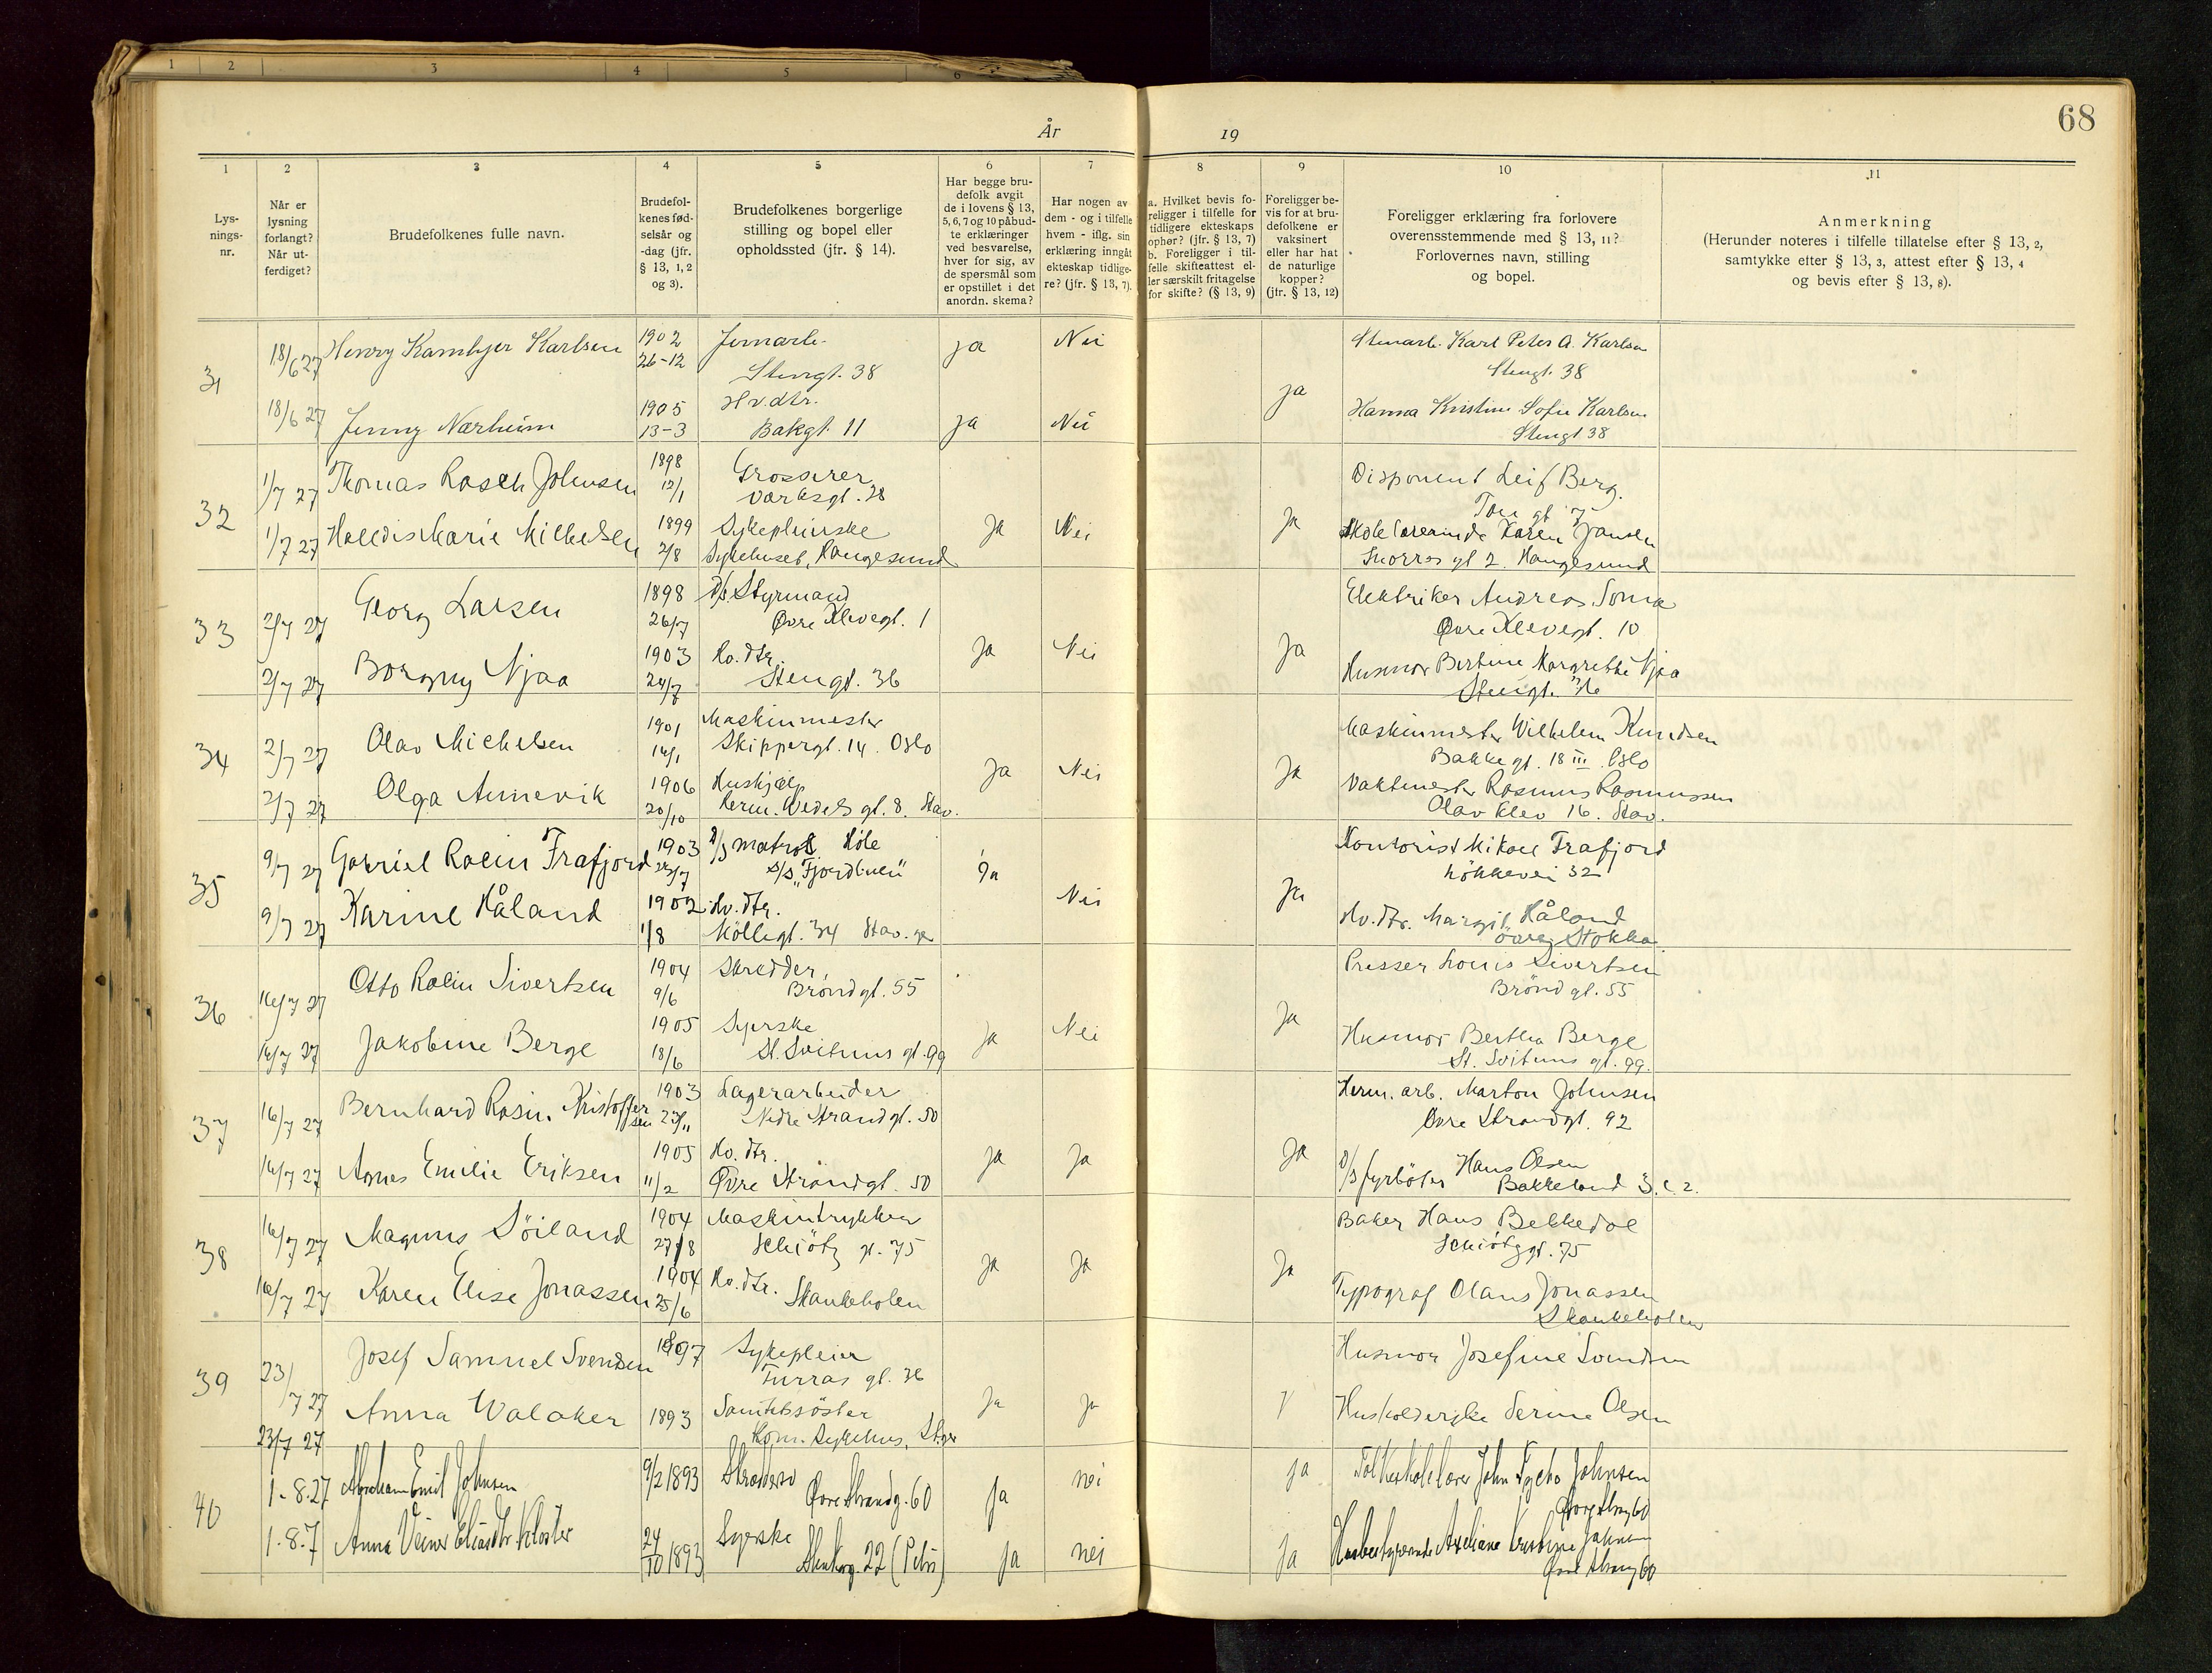 1 2 3 4 5 6
68
År 19
1 2 3 4 5 6 7 8 9 10 11
Lys-
nings-
nr.
Når er
lysning
forlangt?
Når ut-
ferdiget?
Brudefolkenes fulle navn.
Brudefol-
kenes fød-
selsår og
-dag (jfr.
§ 13, 1, 2
og 3).
Brudefolkenes borgerlige
stilling og bopel eller
opholdssted (jfr. § 14).
Har begge bru-
defolk avgit
de i lovens § 13,
5, 6, 7 og 10 påbud-
te erklæringer
ved besvarelse,
hver for sig, av
de spørsmål som
er opstillet i det
anordn. skema?
Har nogen av
dem - og i tilfelle
hvem - iflg. sin
erklæring inngåt
ekteskap tidlige-
re? (jfr. § 13, 7).
a. Hvilket bevis fo-
religger i tilfelle for
tidligere ekteskaps
ophør? (jfr. § 13, 7)
b. Foreligger i til-
felle skifteattest el-
ler særskilt fritagelse
for skifte? (§ 13, 9)
Foreligger be-
vis for at bru-
defolkene er
vaksinert
eller har hat
de naturlige
kopper?
(jfr. § 13, 12)
Foreligger erklæring fra forlovere
overensstemmende med § 13, 11?
Forlovernes navn, stilling
og bopel.
Anmerkning
(Herunder noteres i tilfelle tillatelse efter § 13, 2,
samtykke efter § 13, 3, attest efter § 13, 4
og bevis efter § 13, 8).
31
18/6 27 Henry Karlsen 1902 26-12 Jernarb. Stengt. 38 ja Nei
Stenarb. Karl Peter A. Karlsen
Stengt. 38
18/6 27 Jenny Nærheim 1905 13-3 Hv.dtr. Bakgt. 11 ja Nei ja
Hanna Kristine Sofie Karlsen
Stengt 38
32
1/7 27 Thomas Rasch Johnsen 1898 12/1 Grosserer Værksgt. 28
Disponent Leif Berg.
Tou gt 7
1/7 27 Halldis Marie Mikkelsen 1899 2/8 Sykepleierske Sykehuset, Haugesund Ja Nei Ja
Skolelærerinde Karen Jansen
Snorres gt 2. Haugesund
33
2/7 27 Georg Larsen 1898 26/7 D/s Styrmand Øvre Klevegt. 1
Elektriker Andreas Soma
Øvre Klevegt. 10
2/7 27 Borgny Njaa 1903 24/7 Hv. dtr. Stengt. 36 Ja Nei Ja
Husmor Bertine Margrethe Njaa
Stengt. 36
34
2/7 27 Olav Michelsen 1901 14/1 Maskinmester Skippergt. 14. Oslo
Maskinmester Wilhelm Knudsen
Bakkegt. 18 III. Oslo
2/7 27 Olga Aunevik 1906 20/10 Hushjælp Herm. Wedels gt. 8. Stav. Ja Nei Ja
Vaktmester Rasmus Rasmussen
Olav Klev 16. Stav.
35
9/7 27 Gabriel Rolin Frafjord 1903 22/7 D/s matros Höle s/s "Fjordbuen" Ja
Kontorist Mikael Frafjord
Lökkevei 32
9/7 27 Karine Håland 1902 1/8 Hv. dtr. Möllegt. 34 Stav.ger Nei Ja
Hv. dtr. Margit Håland
övre Stokka
36
16/7 27 Otto Rolin Sivertsen 1904 9/6 Skredder, Bröndgt. 55
Presser Louis Sivertsen
Bröndgt. 55
16/7 27 Jakobine Berge 1905 18/6 Syerske St. Svituns gt. 99 Ja Nei Ja
Husmor Bertha Berge
St. Svituns gt. 99.
37
16/7 27 Bernhard Rasin. Kristoffersen 1903 Lagerarbeider Nedre Strandgt. 50
Herm. arb. Marton Johnsen
Övre Strandgt. 92
16/7 27 Agnes Emilie Eriksen 1905 11/2 Hv. dtr. Øvre Strandgt. 50 Ja Ja Ja
D/s fyrböter Hans Olsen
Bakkeland
38
16/7 27 Magnus Söiland 1904 27/8 Maskintrykker Schiötz gt. 75
Baker Hans Bekkedal
Schiötzgt. 75
16/7 27 Karen Elise Jonassen 1904 25/6 Hv. dtr. Skankeholen Ja Ja Ja
Typograf Olaus Jonassen
Skankeholen
39
23/7 27 Josef Samuel Svendsen 1897 Sykepleier Turras gt. 36
Husmor Josefine Svendsen
23/7 27 Anna Walaker 1893 Samtidssöster Kom. Sykehus, St.ger Ja Ja
Husholderske Serine Olsen
40
1. 8. 27 Abraham Emil Johnsen 9/2 1893 Øvre Strandg. 60 Ja nei ja
Folkeskolelærer John Johnsen
Øvre Strang 60
1. 8. 7 Anna Eliasdtr. Kloster 24/10 1893 Syerske 22 (Petri) Ja nei Ja
Johnsen
Øvre Strang 60